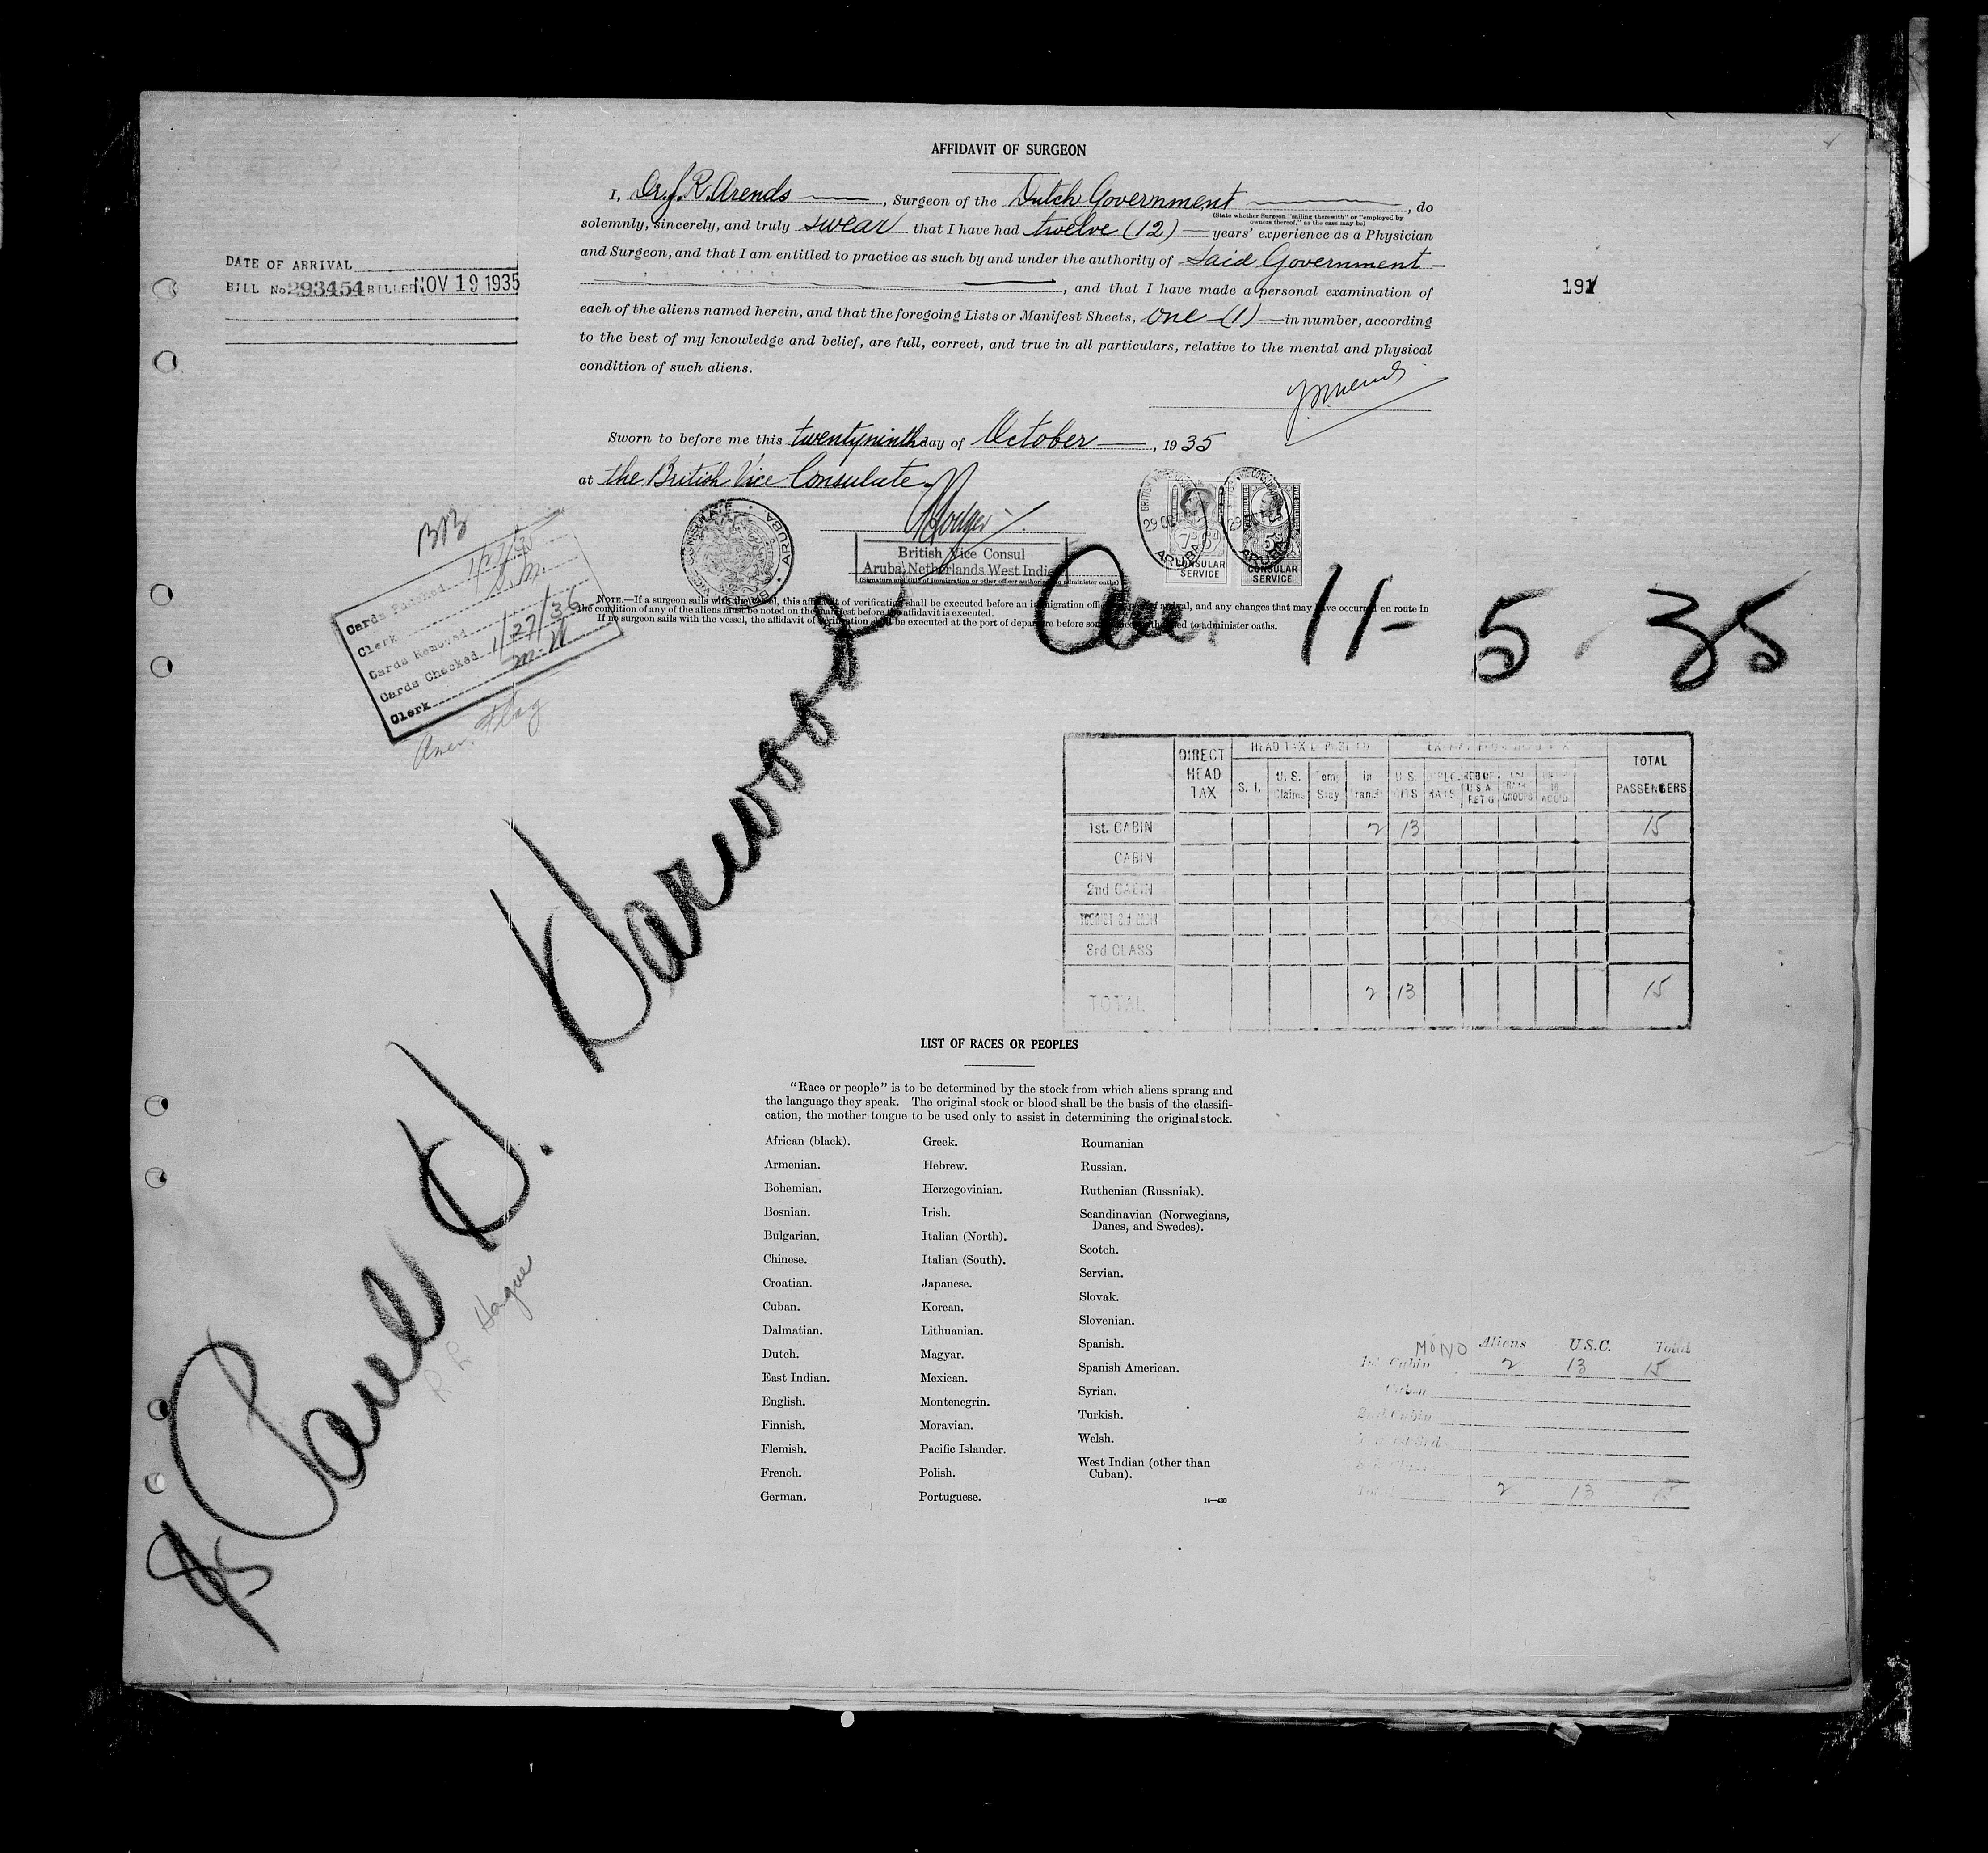 AFFIDAVIT OF SURGEON
I, Dr. J. R. Arends, Surgeon of the Dutch Government, do
(State whether Surgeon "sailing therewith" or "employed by
owners thereof," as the case may be)
solemnly, sincerely, and truly swear that I have had twelve (12) years' experience as a Physician
and Surgeon, and that I am entitled to practice as such by and under the authority of Said Government
, and that I have made a personal examination of
each of the aliens named herein, and that the foregoing Lists or Manifest Sheets, One (1) in number, according
to the best of my knowledge and belief, are full, correct, and true in all particulars, relative to the mental and physical
condition of such aliens.
DATE OF ARRIVAL
BILL No. 293454 BILLED NOV 19 1935
191
Sworn to before me this twentyninth day of October, 1935
at the British Vice Consulate
British Vice Consul
Aruba, Netherlands West Indie
(Signature and title of immigration or other officer authorized to administer oaths)
BRITISH VICE CONSULATE ARUBA
29 OCT
ARUBA
CONSULAR
SERVICE
5s
ARUBA
CONSULAR
SERVICE
NOTE.—If a surgeon sails with the vessel, this affidavit of verification shall be executed before an immigration officer arrival, and any changes that may have occurred en route in
the condition of any of the aliens must be noted on the manifest before the affidavit is executed.
If no surgeon sails with the vessel, the affidavit of verification shall be executed at the port of departure before some authorized to administer oaths.
Cards Punched
Clerk
Cards Removed
Cards Checked 1/27/36
Clerk M.N.
Amer. Flag
Arr. 11-5-35
SS Carell H. Harwood
R R Hague
DIRECT HEAD TAX
HEAD TAX
S. I.
U. S. Claims
Temp Stay
In Transit
U S CITS
TOTAL PASSENGERS
1st. CABIN 2 13 15
CABIN
2nd CABIN
TOURIST 3rd CABIN
3rd CLASS
TOTAL 2 13 15
LIST OF RACES OR PEOPLES
"Race or people" is to be determined by the stock from which aliens sprang and
the language they speak. The original stock or blood shall be the basis of the classifi-
cation, the mother tongue to be used only to assist in determining the original stock.
African (black).
Armenian.
Bohemian.
Bosnian.
Bulgarian.
Chinese.
Croatian.
Cuban.
Dalmatian.
Dutch.
East Indian.
English.
Finnish.
Flemish.
French.
German.
Greek.
Hebrew.
Herzegovinian.
Irish.
Italian (North).
Italian (South).
Japanese.
Korean.
Lithuanian.
Magyar.
Mexican.
Montenegrin.
Moravian.
Pacific Islander.
Polish.
Portuguese.
Roumanian
Russian.
Ruthenian (Russniak).
Scandinavian (Norwegians,
Danes, and Swedes).
Scotch.
Servian.
Slovak.
Slovenian.
Spanish.
Spanish American.
Syrian.
Turkish.
Welsh.
West Indian (other than
Cuban).
14—430
MONO Aliens U.S.C. Total
1st Cabin 2 13 15
Cabin
2nd Cabin
Total 2 13 15